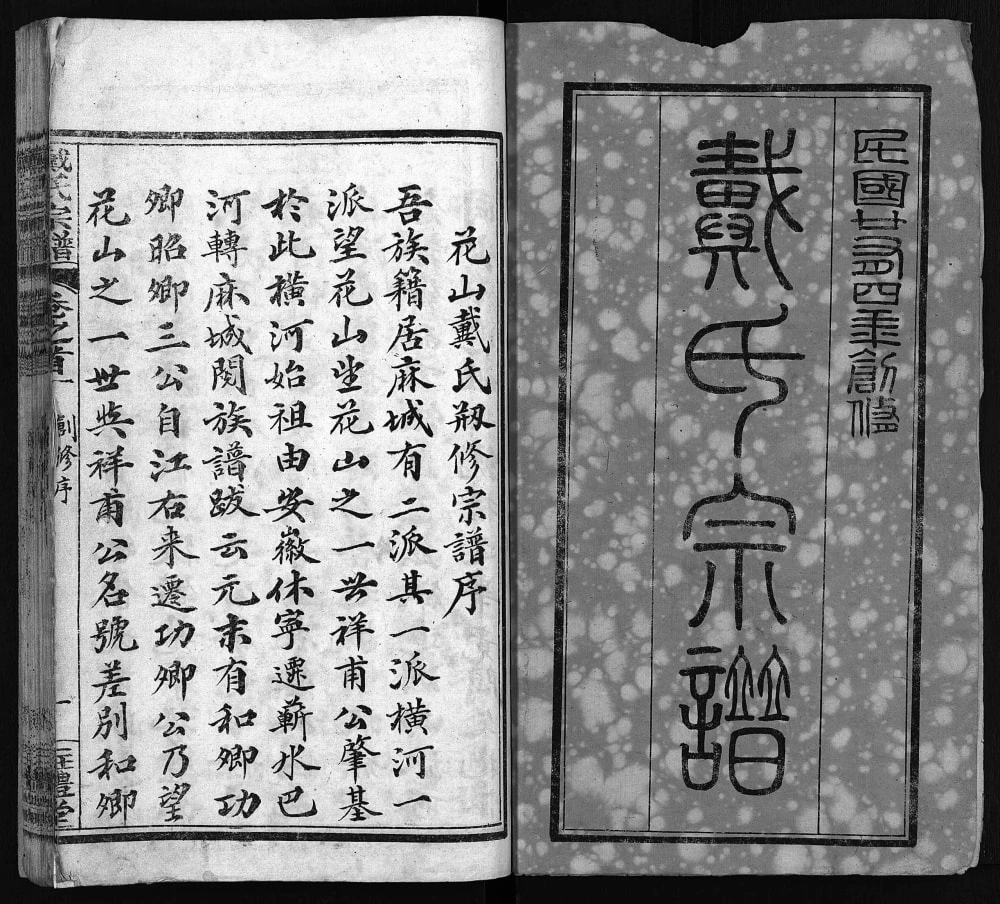 民國廿有四年創修
戴氏宗譜
花山戴氏刱修宗譜序
吾族籍居麻城有二派其一派橫河一
派望花山坐花山之一世祥甫公肇基
於此橫河始祖由安徽休寧遷蘄水巴
河轉麻城閱族譜跋云元末有和卿功
卿昭卿三公自江右来遷功卿公乃望
花山之一世與祥甫公名號差別和卿
戴氏宗譜 卷之首一 創修序 一 註禮堂